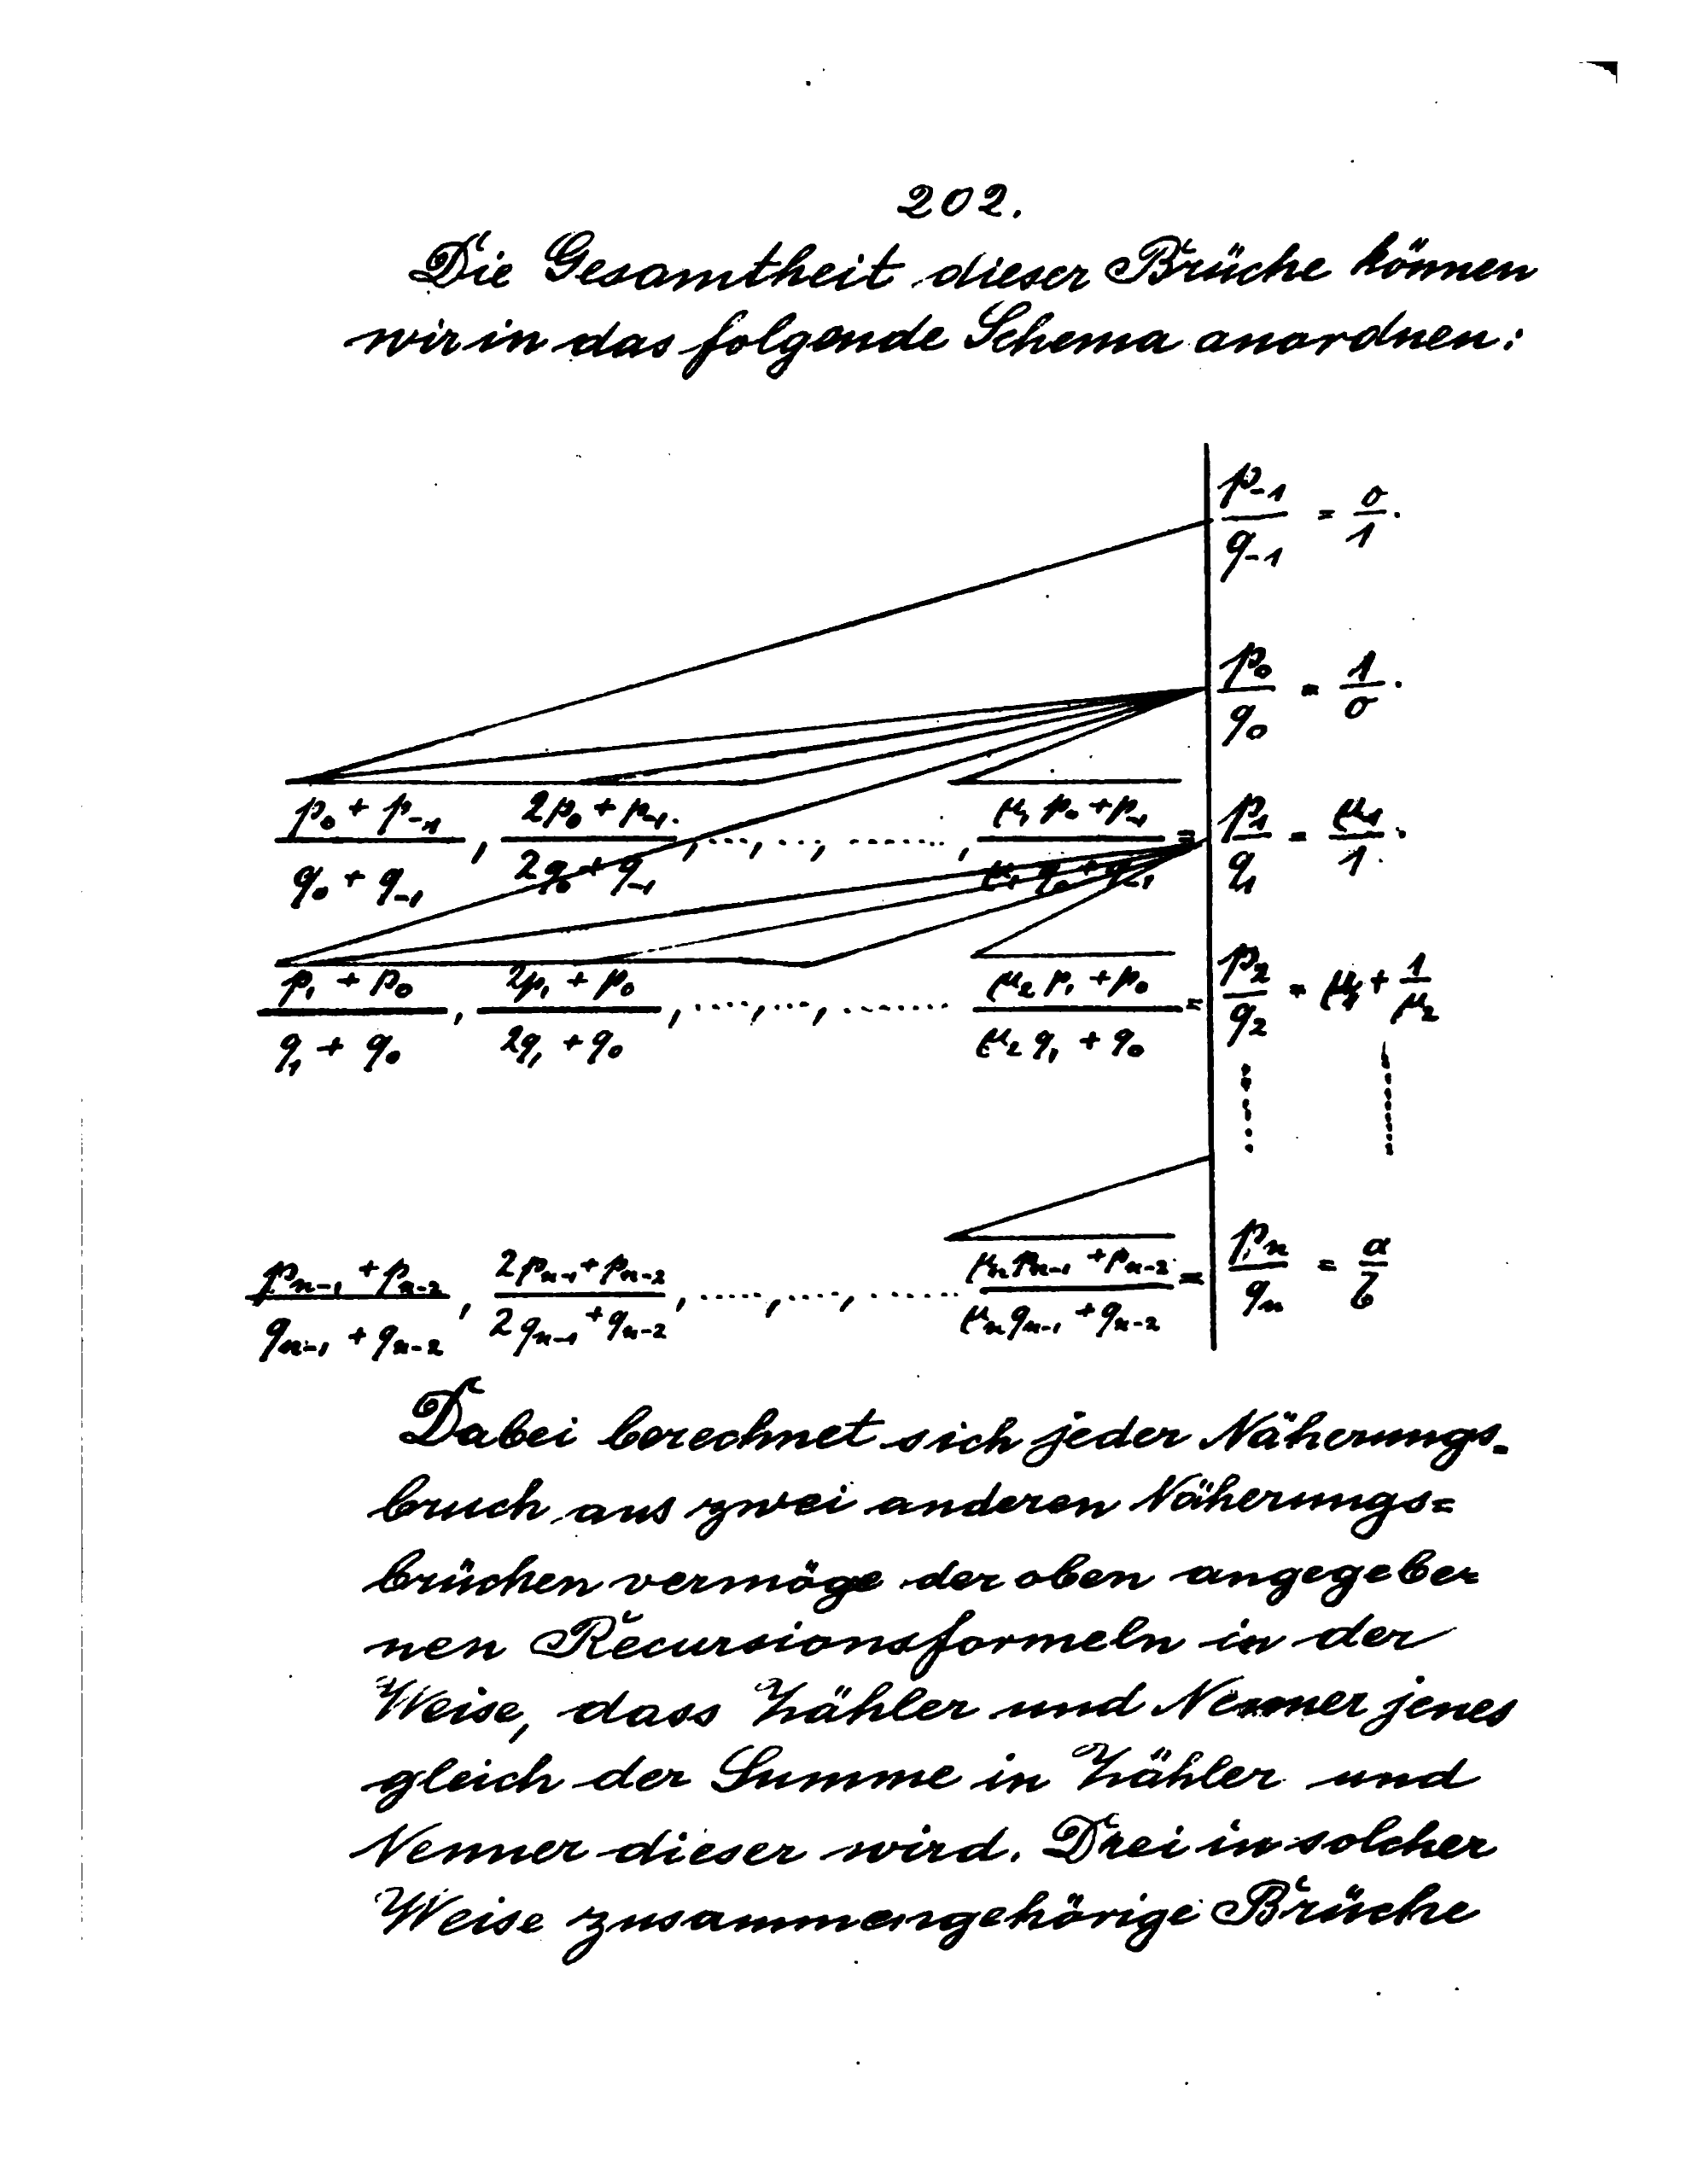 202.
Die Gesamtheit dieser Brüche können
wir in das folgende Schema anordnen:
p₋₁/q₋₁ = 0/1.
p₀/q₀ = 1/0.
(p₀ + p₋₁)/(q₀ + q₋₁), (2p₀ + p₋₁)/(2q₀ + q₋₁), ....., ...., ........, (μ₁p₀ + p₋₁)/(μ₁q₀ + q₋₁) = p₁/q₁ = μ₁/1.
(p₁ + p₀)/(q₁ + q₀), (2p₁ + p₀)/(2q₁ + q₀), ....., ...., ........ (μ₂p₁ + p₀)/(μ₂q₁ + q₀) = p₂/q₂ = μ₁ + 1/μ₂
(pₙ₋₁ + pₙ₋₂)/(qₙ₋₁ + qₙ₋₂), (2pₙ₋₁ + pₙ₋₂)/(2qₙ₋₁ + qₙ₋₂), ....., ...., ........ (μₙpₙ₋₁ + pₙ₋₂)/(μₙqₙ₋₁ + qₙ₋₂) = pₙ/qₙ = a/b
Dabei berechnet sich jeder Näherungs-
bruch aus zwei anderen Näherungs=
brüchen vermöge der oben angegebe-
nen Recursionsformeln in der
Weise, dass Zähler und Nenner jenes
gleich der Summe in Zähler und
Nenner dieser wird. Drei in solcher
Weise zusammengehörige Brüche